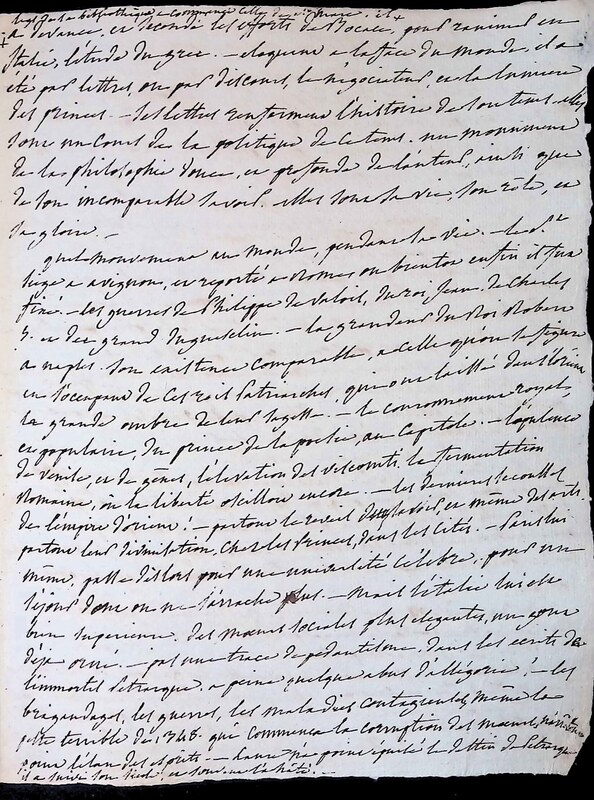 la bibliothèque a commencé celle de France. il
a devancé, et secondé les efforts de Bocace, pour ranimer en
Italie, l'étude du grec. – éloquence à la face du monde, il a
été par lettres, ou par discours, le négociateur, et la lumière
des princes. – ses lettres renferment l'histoire de son tems. elles
sont un cours de la politique de ce tems. un monument
de la philosophie douce, et profonde de l'auteur, ainsi que
de son incomparable savoir. elles sont sa vie, son rôle, et
sa gloire. –
quel mouvement au monde, pendant sa vie. – le St
siège à avignon, et reporté à Rome où bientôt enfin il fut
fixé. – les guerres de Philippe de Valois, du roi Jean, de Charles
5. et du grand Duguesclin. – la grandeur du Roi Robert
à naples. son existence comparable, à celle qu'on se figure
en s'occupant de ces rois Patriarches, qui ont laissé dans l'orient
la grande ombre de leur sagesse. – le couronnement royal,
et populaire, du prince de la poésie, au Capitole. – l'opulence
de Venise, et de gênes, l'élévation des viscomti. la fermentation
Romaine, où la liberté oscillon encore. – les dernières secousses
de l'empire d'orient! – partout le réveil du savoir, et même des arts.
partout leur d'invitation, chez les Princes, dans les Cités. – Paris lui
même, passe dès lors pour une université célèbre, pour un
séjour dont on ne s'arrache plus. – mais l'italie lui est
bien supérieure. des mœurs sociales plus élégantes, un goût
déjà orné. – pas une trace de pédantisme, dans les écrits de
l'immortel Petrarque. à peine quelque abus d'allégorie! – les
brigandages, les guerres, les maladies contagieuses, même la
peste terrible de 1348. qui commença la corruption des mœurs,
pour l'élan des esprits. – le destin de Petrarque
a suivi son siècle, et